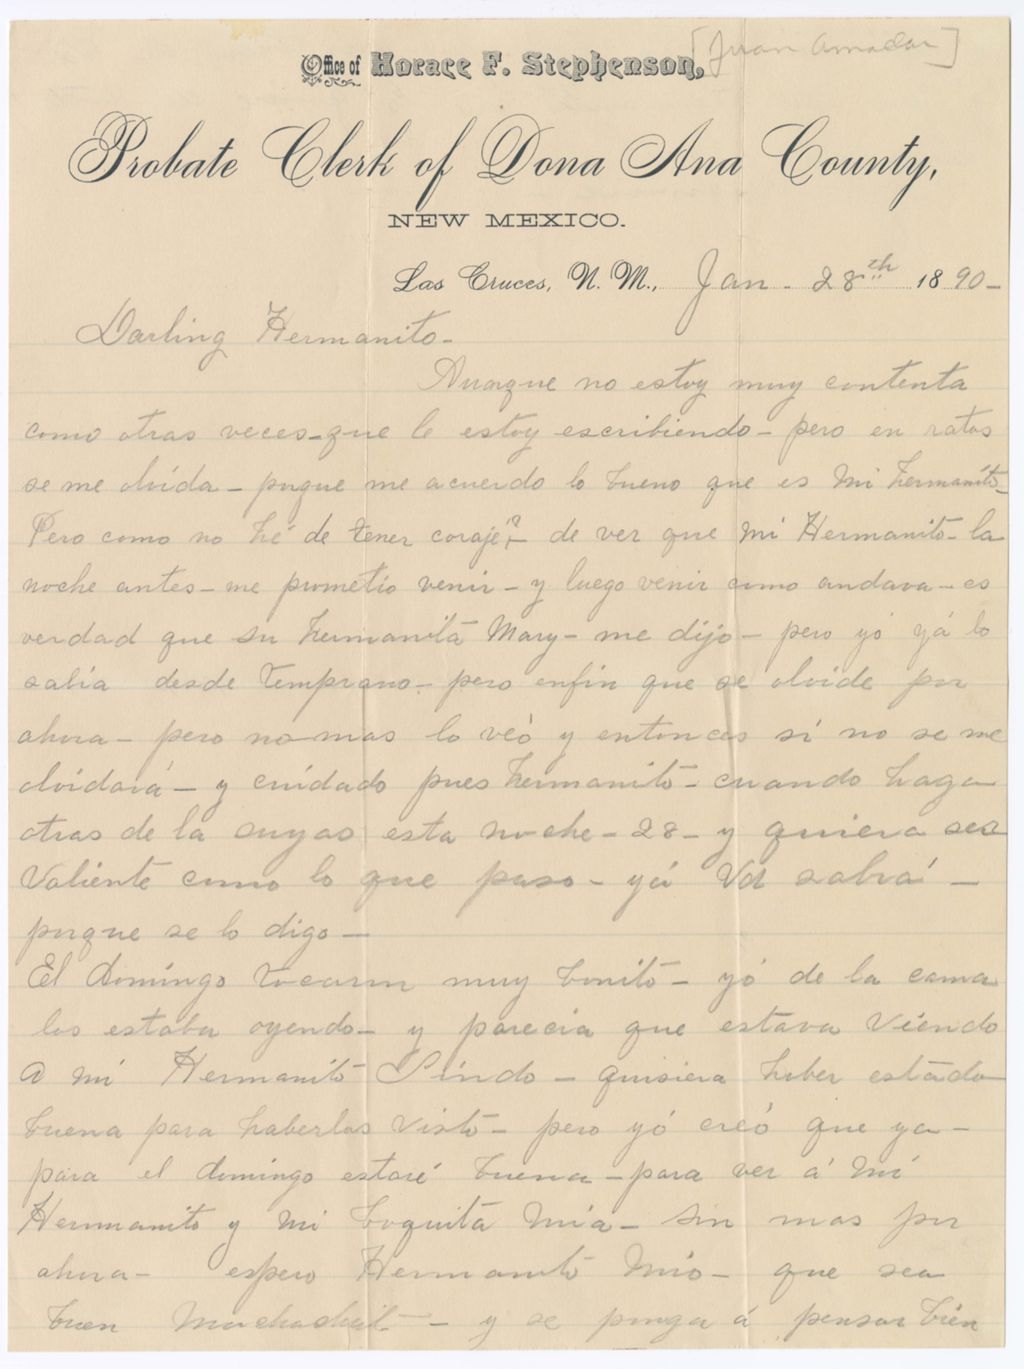 [Juan Amador]
Office of Horace F. Stephenson,
Probate Clerk of Dona Ana County,
NEW MEXICO.
Las Cruces, N. M., Jan. 28th 1890-
Darling Hermanito-
Aunque no estoy muy contenta
como otras veces-que le estoy escribiendo- pero en ratos
se me olvida- puque me acuerdo lo bueno que es mi hermanito-
Pero como no hé de tener coraje?- de ver que mi Hermanito- la
noche antes- me prometio venir- y luego venir como andava- es
verdad que su hermanita Mary- me dijo- pero yó yá lo
sabia desde temprano- pero enfin que se olvide por
ahora- pero no mas lo veó y entonces si no se me
olvidará- y cuidado pues hermanito- cuando haga
otras de la suyas esta noche- 28- y quiera ser
Valiente como lo que paso- yá Vd sabrá-
porque se lo digo-
El domingo tocaron muy bonito- yó de la cama
los estaba oyendo- y parecia que estava viendo
a mi Hermanito Lindo- quisiera haber estado
buena para haberlos visto- pero yó creó que ya-
para el domingo estaré buena- para ver á mi
Hermanito y mi boquita mia- sin mas por
ahora- espero Hermanito mio- que sea
buen muchachito- y se ponga á pensar bien